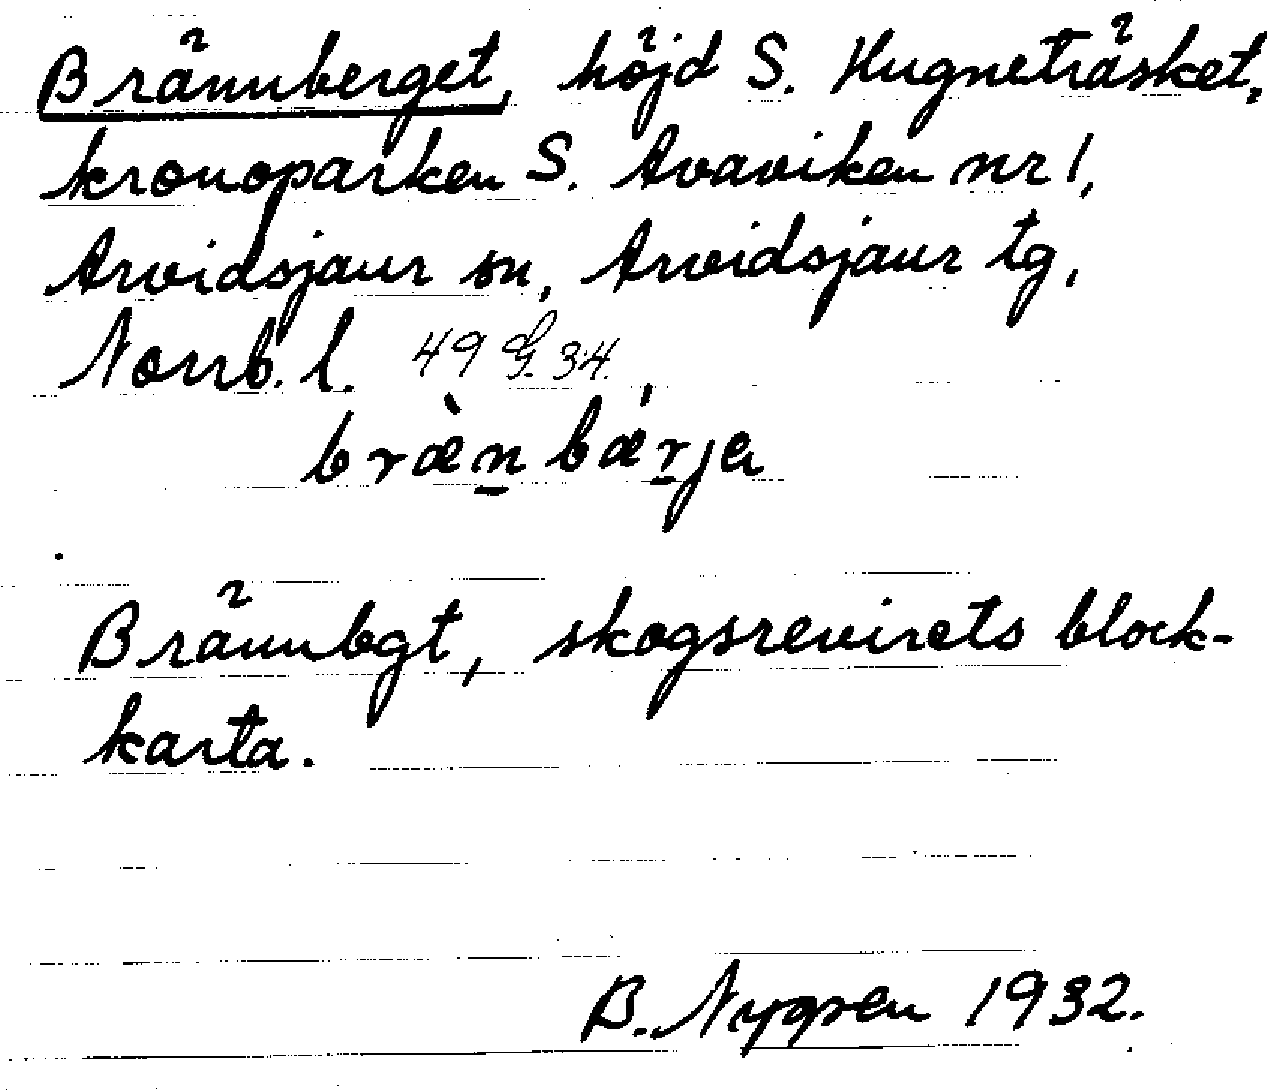 Brännberget, höjd S. Hugneträsket,
kronoparken S. Avaviken nr 1,
Arvidsjaur sn, Arvidsjaur tg,
Norrb. l. 49 G. 34.
bræ̀n bǽrja
Brännbgt, skogsrevirets block-
karta.
B. Nygren 1932.